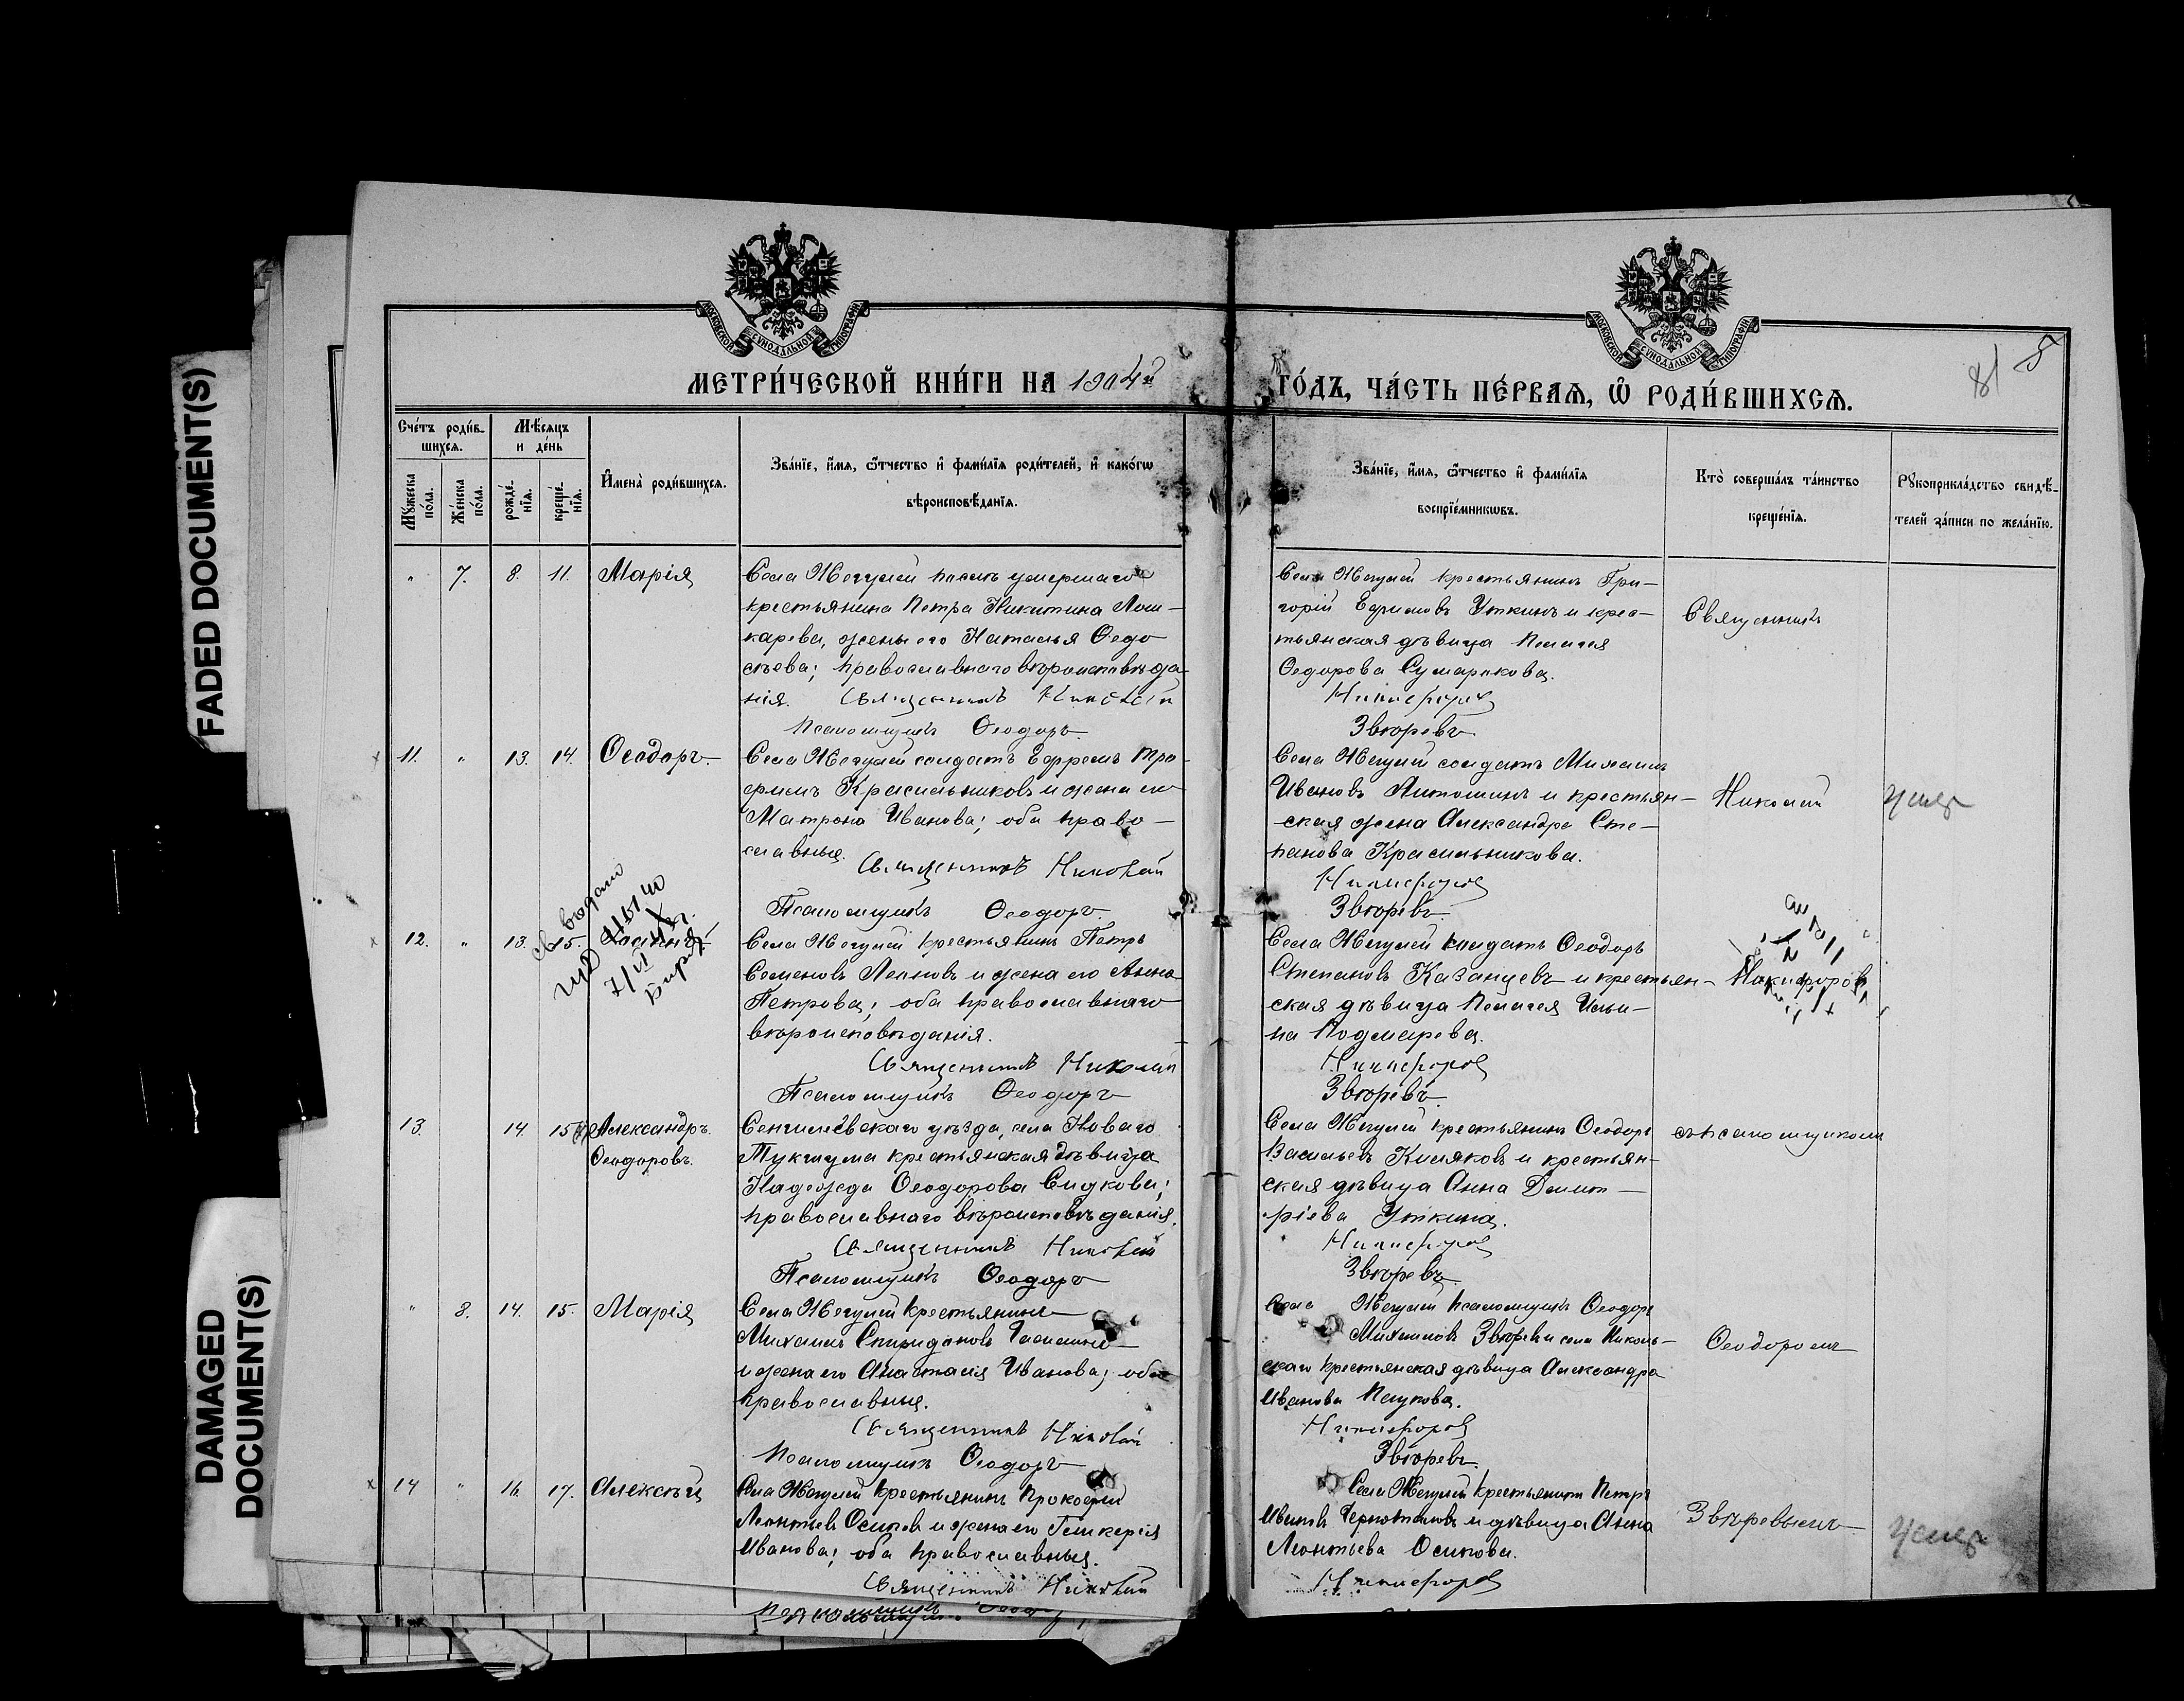 FADED DOCUMENT(S)
DAMAGED
DOCUMENT(S)
МОСКОВСКОЙ СѴНОДАЛЬНОЙ ТИПОГРАФІИ
МОСКОВСКОЙ СѴНОДАЛЬНОЙ ТИПОГРАФІИ
МЕТРИ́ЧЕСКОЙ КНИ́ГИ НА 1904й ГО́ДЪ, ЧА́СТЬ ПЕ́РВАѦ, Ѽ РОДИ́ВШИХСѦ.
81 5
Сче́тъ роди́в-
шихсѧ.
Мꙋжеска по́ла.
Же́нска по́ла.
Мѣ́сѧцъ
и де́нь
рожде́-
нїѧ.
креще́-
нїѧ.
И҆мена̀ роди́вшихсѧ.
Зва́нїе, и҆́мѧ, ѻ҆́тчество и҆ фами́лїѧ роди́телей, и҆ како́гѡ
вѣроисповѣ́данїѧ.
Зва́нїе, и҆́мѧ, ѻ҆́тчество и҆ фами́лїѧ
воспрїе́мникѡвъ.
Кто̀ соверша́лъ та́инство
креще́нїѧ.
Рꙋкоприкла́дство свидѣ́-
телей за́писи по жела́нїю.
" 7. 8. 11. Марія
Села Жегулей послѣ умершаго
крестьянина Петра Никитина Лош-
карева, жены его Наталья Ѳедо
сѣева; православнаго вѣроисповѣда-
нія. Священникъ Николай
Псаломщикъ Ѳеодоръ
Села Жегулей крестьянинъ Гри-
горій Ефимовъ Уткинъ и крес-
тьянская дѣвица Пелагея
Ѳедорова Сумарокова.
Никифоровъ
Звѣревъ.
Священникъ
11. " 13. 14. Ѳеодоръ.
Села Жегулей солдатъ Ефремъ Тро-
фимъ Красильниковъ и жена его
Матрона Иванова; оба право-
славные.
Священникъ Николай
Псаломщикъ Ѳеодоръ.
Села Жегулей солдатъ Михаилъ
Ивановъ Антошинъ и крестьян-
ская жена Александра Сте-
панова Красильникова.
Никифоровъ
Звѣревъ.
Николай
умер
12. " 13. 15.
7/VI
Села Жегулей крестьянинъ Петръ
Семеновъ Леоновъ и жена его Анна
Петрова; оба православнаго
вѣроисповѣданія.
Священникъ Николай
Псаломщикъ Ѳеодоръ
Села Жегулей солдатъ Ѳеодоръ
Степановъ Казанцевъ и крестьян-
ская дѣвица Пелагея Ильи-
на Подмарева.
Никифоровъ
Звѣревъ.
Никифоровъ
13. 14. 15 Александръ.
Ѳеодоровъ.
Сенгилеевскаго уѣзда, села Новаго
Тукшума крестьянская дѣвица
Надежда Ѳеодорова Сидкова;
православнаго вѣроисповѣданія.
Священникъ Николай
Псаломщикъ Ѳеодоръ
Села Жегулей крестьянинъ Ѳеодоръ
Васильевъ Кисляковъ и крестьян-
ская дѣвица Анна Димит-
ріева Уткина.
Никифоровъ
Звѣревъ.
съ псаломщикомъ
" 8. 14. 15. Марія
Села Жегулей крестьянинъ
Михаилъ Спиридоновъ
и жена его Анастасія Иванова; оба
православные.
Священникъ Николай
Псаломщикъ Ѳеодоръ
Села Жегулей псаломщикъ Ѳеодоръ
Михайловъ Звѣревъ и села Николь-
скаго крестьянская дѣвица Александра
Иванова
Никифоровъ
Звѣревъ.
Ѳеодоромъ
14 " 16. 17. Алексѣй
Села Жегулей крестьянинъ Прокофій
Леонтьевъ Осиповъ и жена его Гликерія
Иванова; оба православные.
Священникъ Николай
Псаломщикъ Ѳеодоръ
Села Жегулей крестьянинъ Петръ
Ивановъ и дѣвица Анна
Леонтьева Осипова.
Никифоровъ
Звѣревымъ
умер